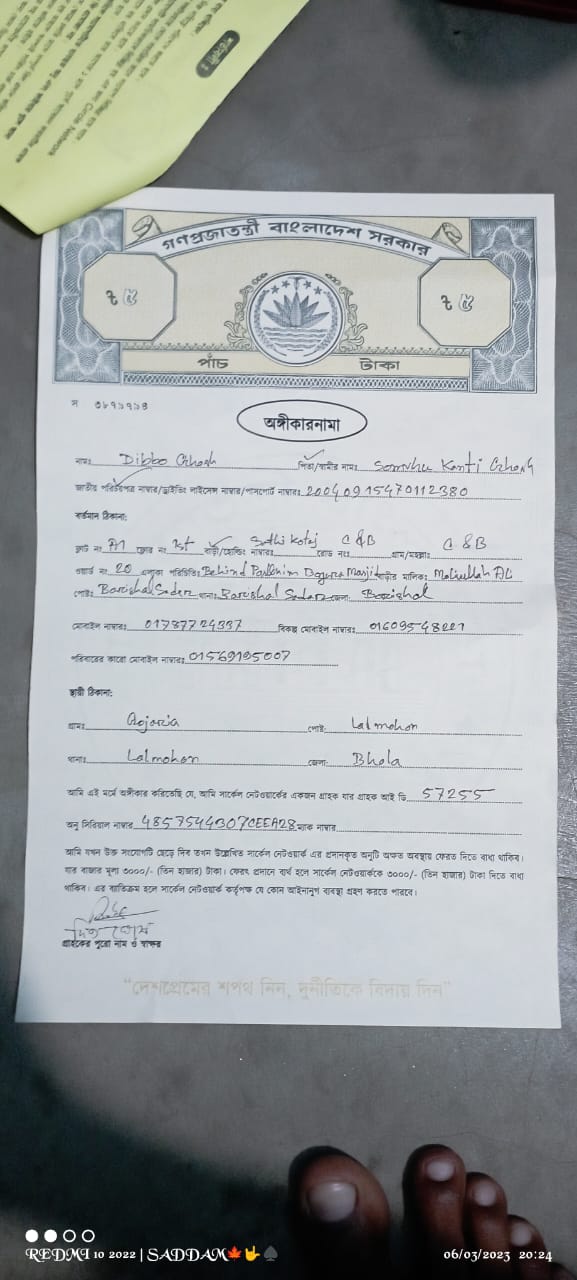 গণপ্রজাতন্ত্রী বাংলাদেশ সরকার
৳ ৫ ৳ ৫
পাঁচ টাকা
অঙ্গীকারনামা
নামঃ Dibbo Ghosh পিতা/স্বামীর নামঃ Somvhu Kanti Ghosh
জাতীয় পরিচয়পত্র নাম্বার/ড্রাইভিং লাইসেন্স নাম্বার/পাসপোর্ট নাম্বারঃ 20040915470112380
বর্তমান ঠিকানা:
ফ্লাট নং A1 ফ্লোর নং 1st বাড়ী/হোল্ডিং নাম্বারঃ Sathi Kotej রোড নংঃ C&B গ্রাম/মহল্লাঃ C&B
ওয়ার্ড নং 20 এলাকা পরিচিতিঃ Behind Poschim Bogura Masjid বাড়ীর মালিকঃ Motiullah Ali
পোষ্টঃ Barishal Sadar থানাঃ Barishal Sadar জেলাঃ Barishal
মোবাইল নাম্বারঃ 01787724337 বিকল্প মোবাইল নাম্বারঃ
পরিবারের কারো মোবাইল নাম্বারঃ 01569195007
স্থায়ী ঠিকানা:
গ্রামঃ Gojaria পোষ্ট: Lalmohon
থানাঃ Lalmohon জেলা: Bhola
আমি এই মর্মে অঙ্গীকার করিতেছি যে, আমি সার্কেল নেটওয়ার্কের একজন গ্রাহক যার গ্রাহক আই ডি 57255
অনু সিরিয়াল নাম্বার 4857544307CEEA28 ম্যাক নাম্বার
আমি যখন উক্ত সংযোগটি ছেড়ে দিব তখন উল্লেখিত সার্কেল নেটওয়ার্ক এর প্রদানকৃত অনুটি অক্ষত অবস্থায় ফেরত দিতে বাধ্য থাকিব।
যার বাজার মূল্য ৩০০০/- (তিন হাজার) টাকা। ফেরৎ প্রদানে ব্যর্থ হলে সার্কেল নেটওয়ার্ককে ৩০০০/- (তিন হাজার) টাকা দিতে বাধ্য
থাকিব। এর ব্যতিক্রম হলে সার্কেল নেটওয়ার্ক কর্তৃপক্ষ যে কোন আইনানুগ ব্যবস্থা গ্রহণ করতে পারবে।
দিব্য ঘোষ
গ্রাহকের পুরো নাম ও স্বাক্ষর
"দেশপ্রেমের শপথ নিন, দুর্নীতিকে বিদায় দিন"
REDMI 10 2022 | SADDAM🍁🤟♠ 06/03/2023 20:24